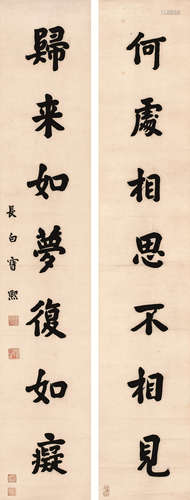 何處相思不相見
歸来如夢復如癡
長白寶熙